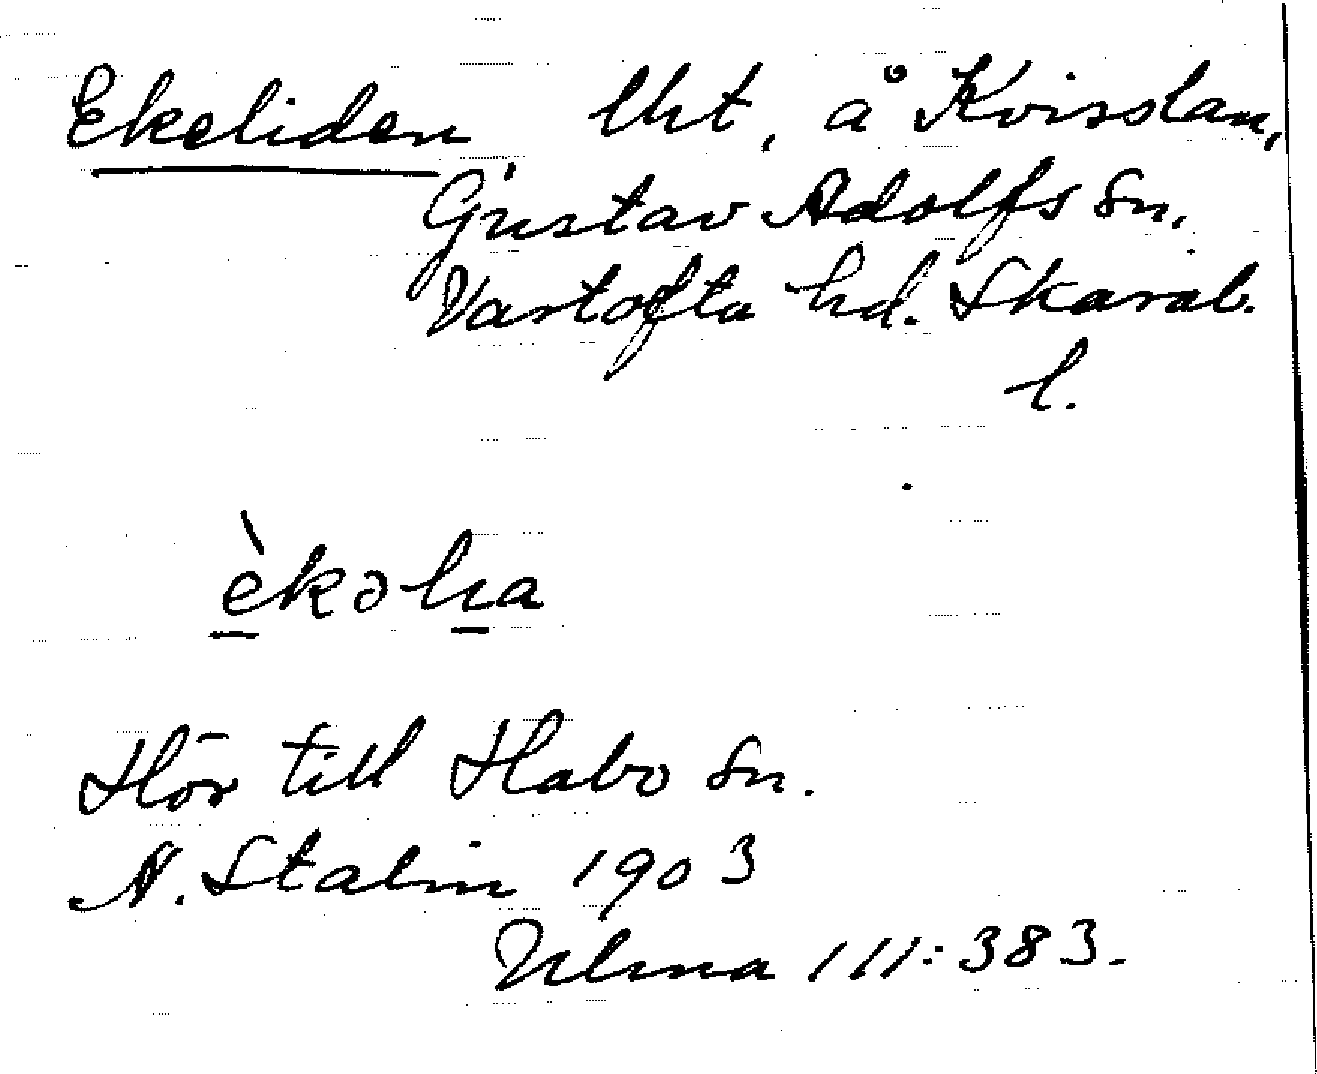 Ekeliden lht, å Kvisslan,
Gustav Adolfs sn,
Vartofta hd. Skarab.
l.
èkəlia
Hör till Habo sn.
N. Stalin 1903
Ulma 111:383.